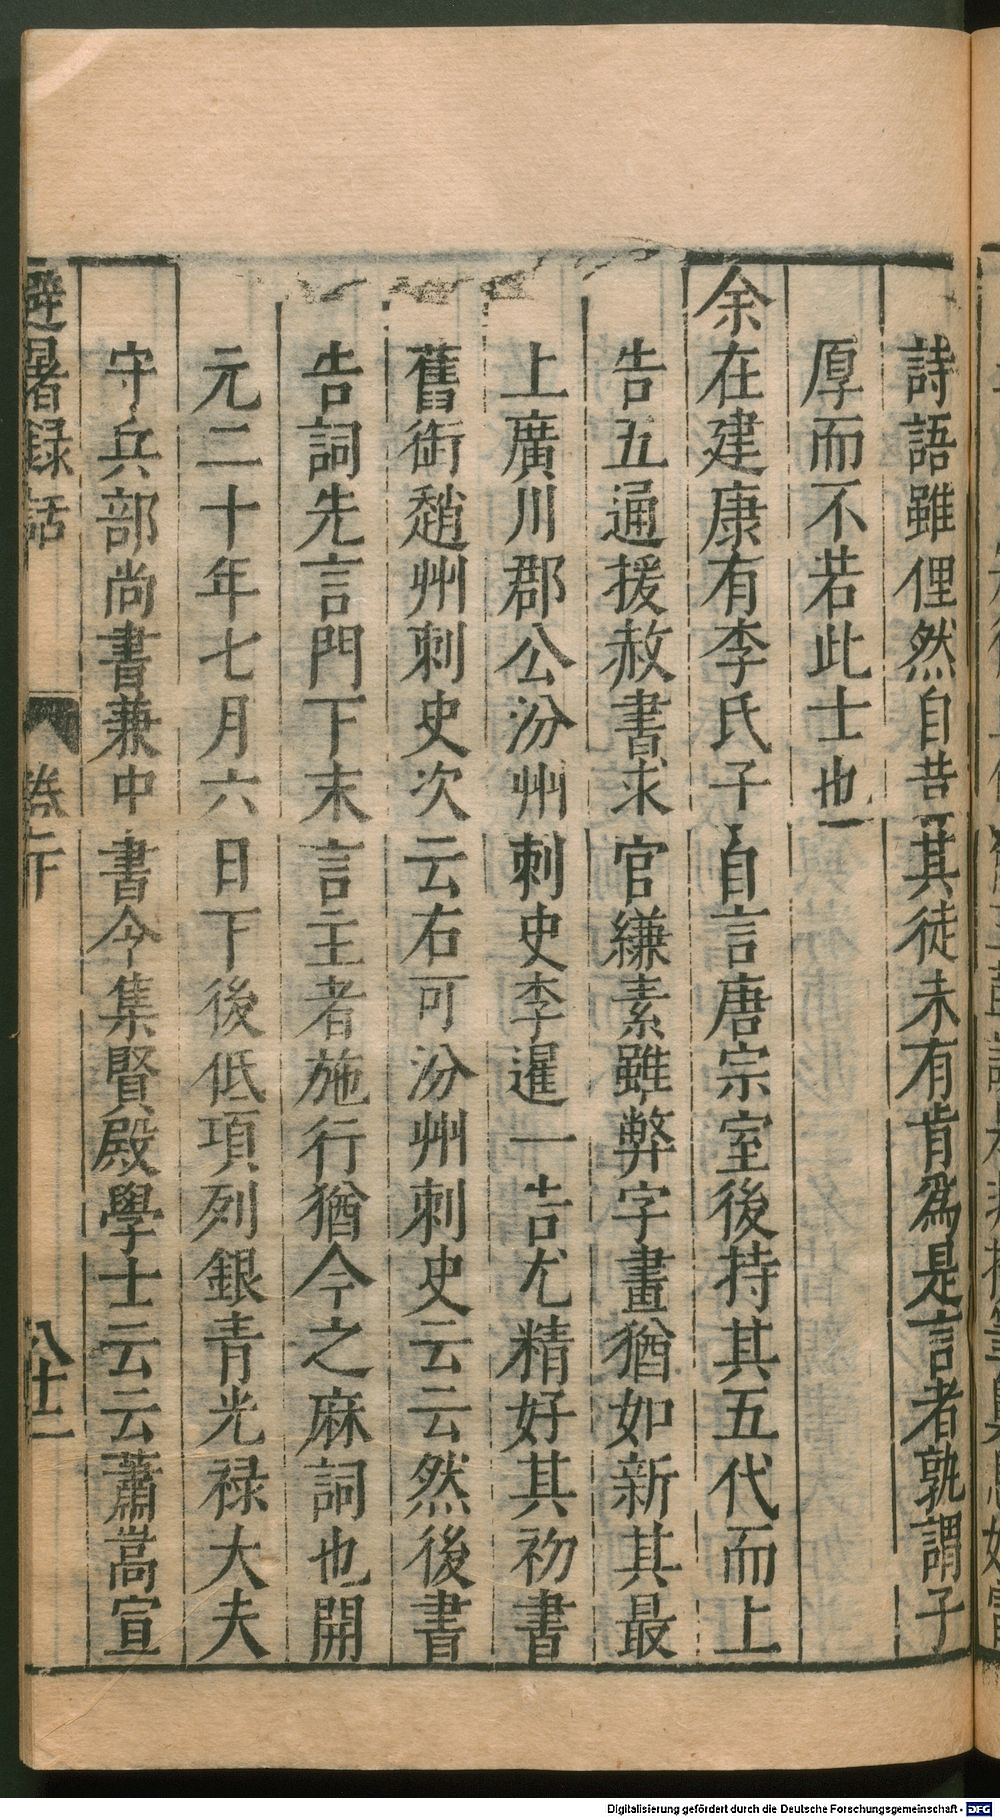 詩語雖俚然自昔其徒未有肯爲是言者孰謂子
厚而不若此士也
余在建康有李氏子自言唐宗室後持其五代而上
告五通援赦書求官縑素雖弊字畫猶如新其最
上廣川郡公汾州刺史李暹一告尤精好其初書
舊銜趙州刺史次云右可汾州刺史云云然後書
告詞先言門下末言主者施行猶今之麻詞也開
元二十年七月六日下後低項列銀青光祿大夫
守兵部尚書兼中書令集賢殿學士云云蕭嵩宣
避暑録話
卷下
八十二
Digitalisierung gefördert durch die Deutsche Forschungsgemeinschaft - DFG